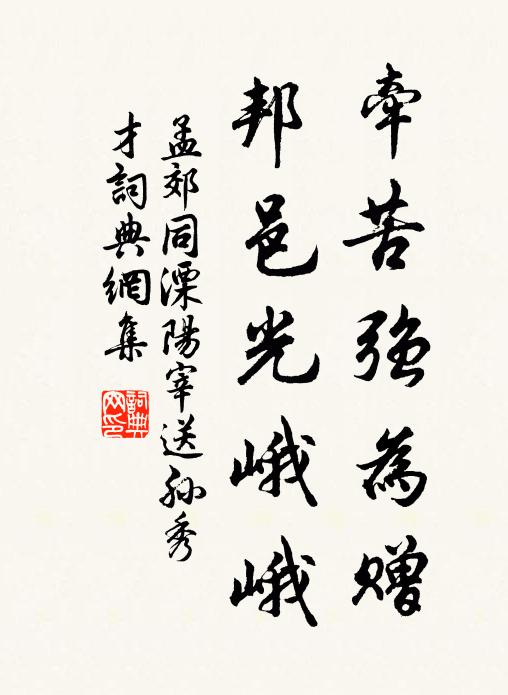 牽苦強為贈
邦邑光峨峨
孟郊同溧陽宰送孙秀
才詞典網集
詞典网印